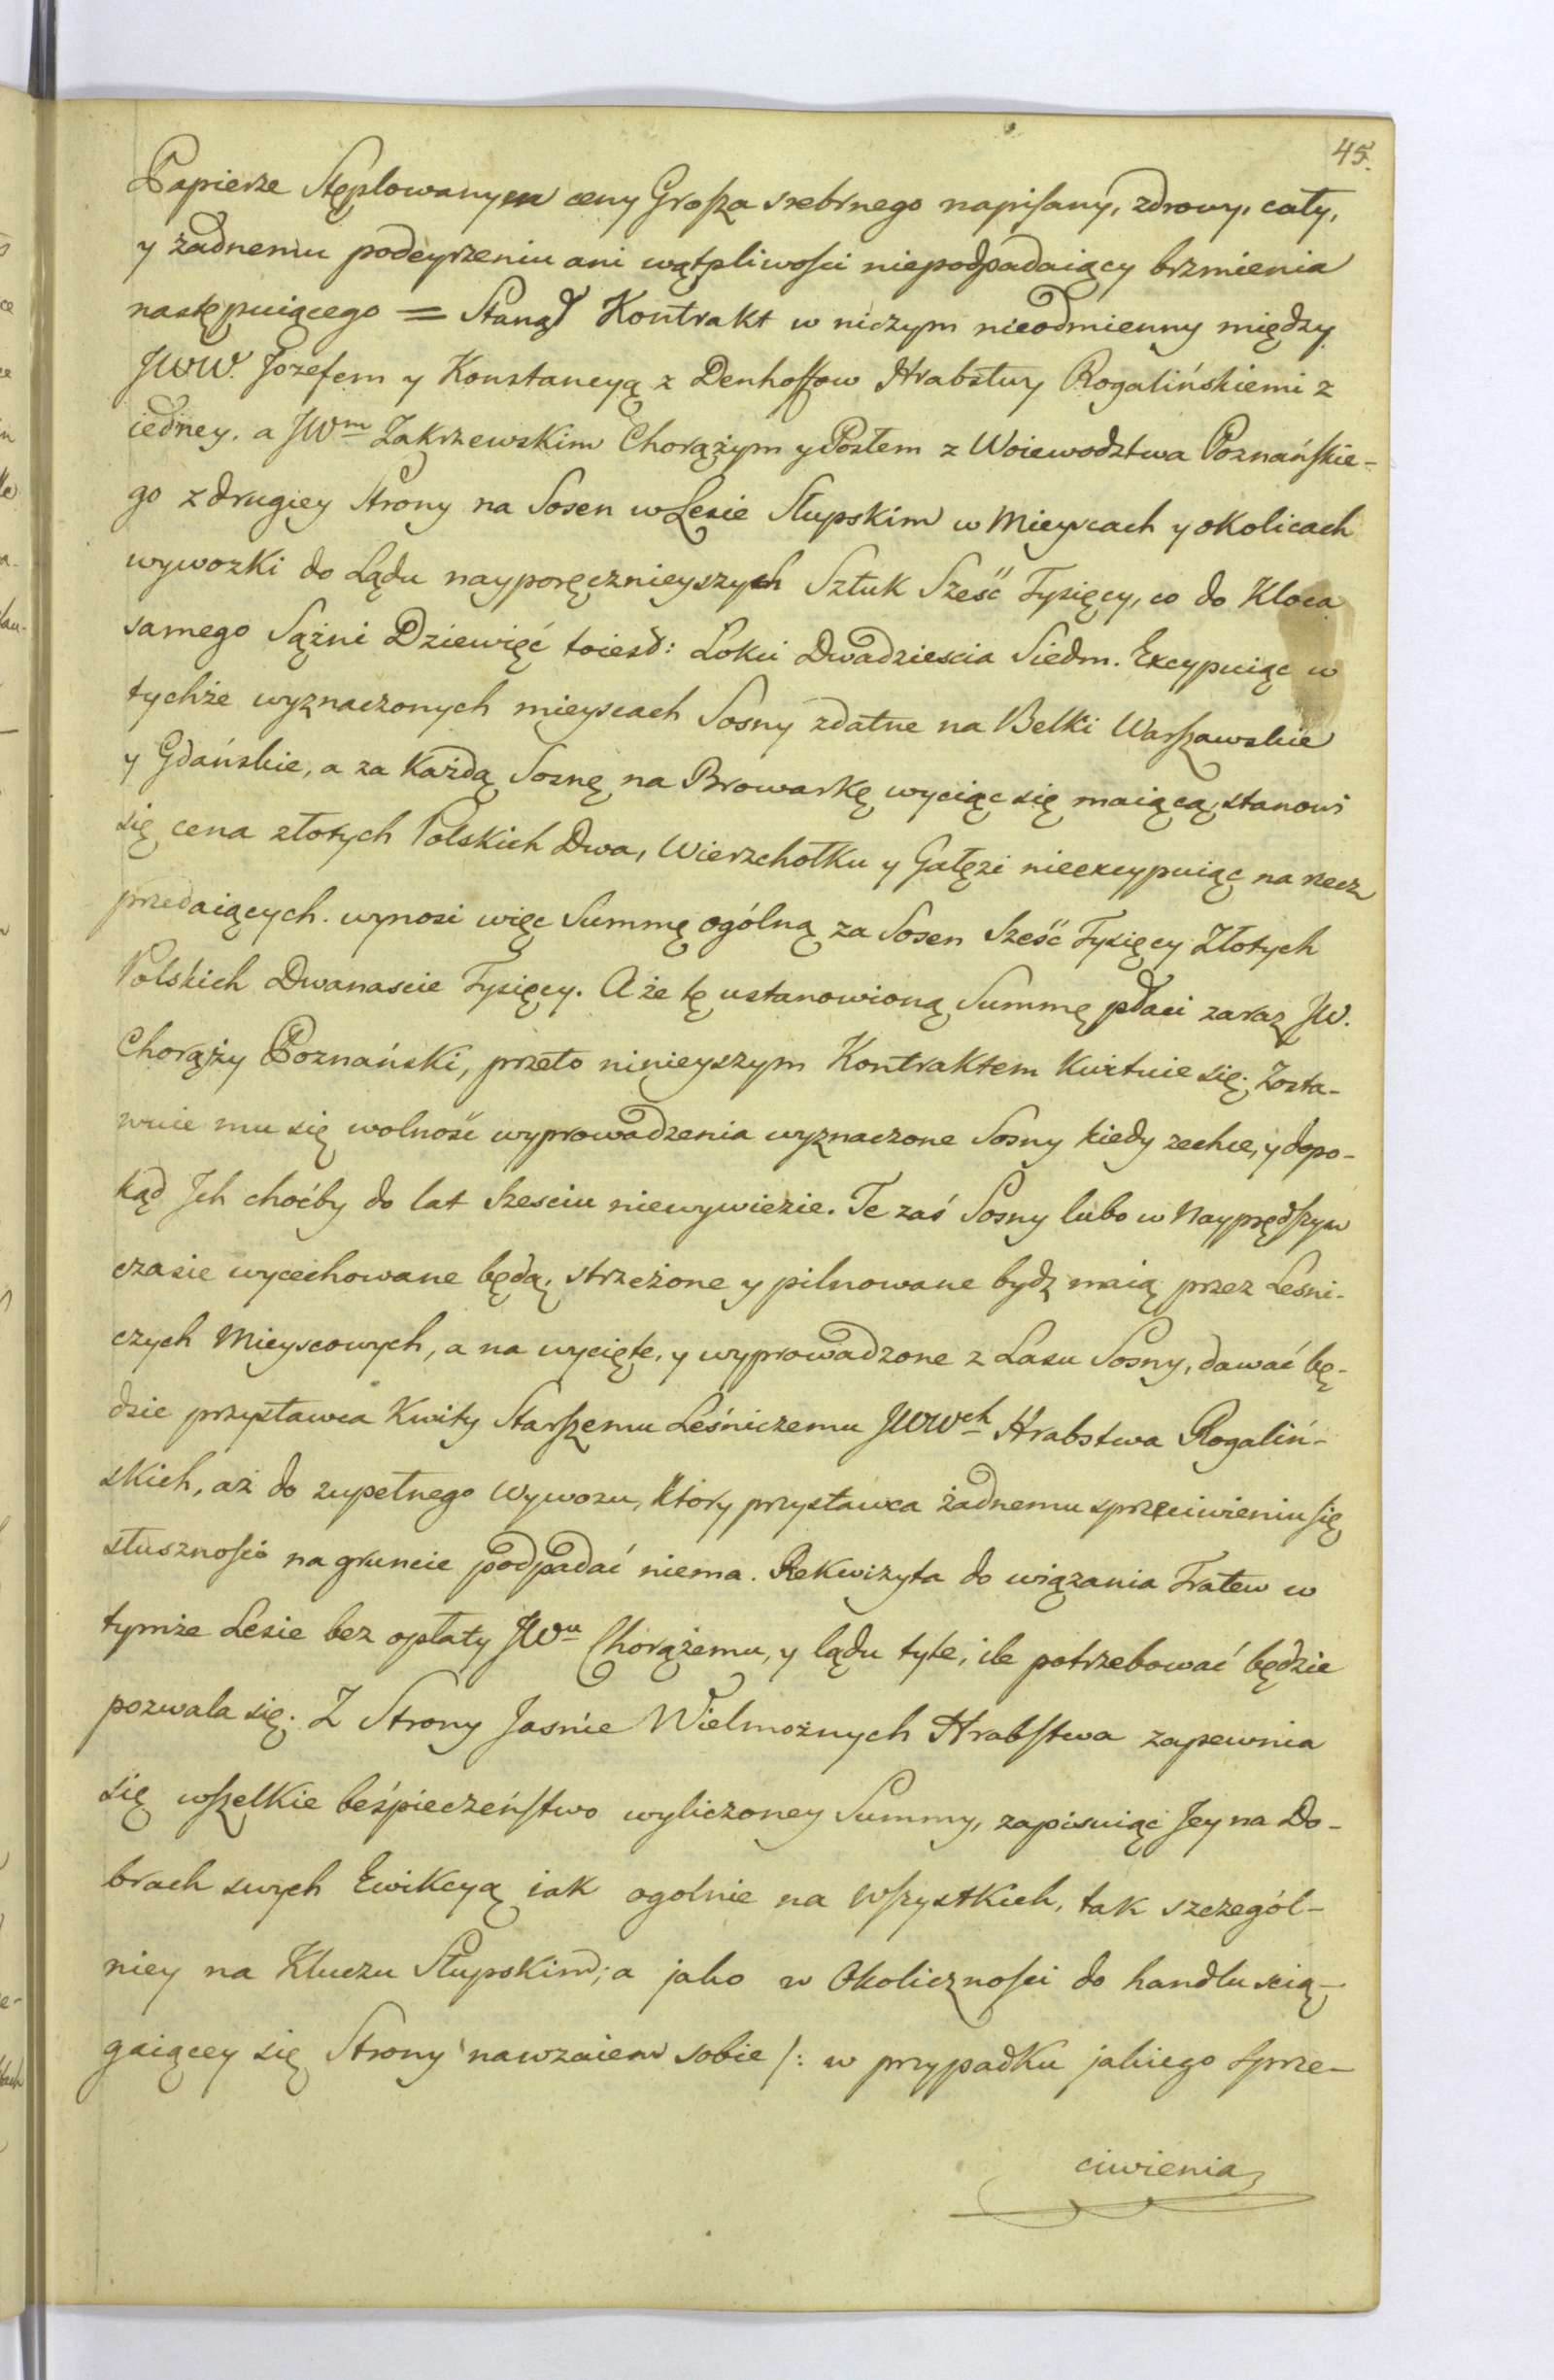 45.
Papierze Stęplowanym ceny Grosza srebrnego napisany, zdrowy, cały,
y żadnemu podeyrzeniu ani wątpliwości niepodpadaiący brzmienia
następuiącego = Stanął Kontrakt w niczym nieodmienny między
JWW. Jozefem y Konstancyą z Denhoffow Hrabstwy Rogalińskiemi z
iedney, a JWm Zakrzewskim Chorążym y Posłem z Woiewodztwa Poznańskie-
go z drugiey Strony na Sosen w Lesie Słupskim w Mieyscach y okolicach
wywozki do Lądu nayporęcznieyszych Sztuk Sześć Tysięcy, co do Kloca
samego Sążni Dziewięć toiesd: Łokci Dwadziescia Siedm. Excypuiąc w
tychże wyznaczonych mieyscach Sosny zdatne na Belki Warszawskie
y Gdańskie, a za każdą Sosnę na Browarkę wyciąc się maiącą, stanowi
się cena złotych Polskich Dwa, Wierzchołku y Gałęzi nieexcypuiąc na rzecz
przedaiących. wynosi więc Summę ogólną za Sosen Sześć Tysięcy Złotych
Polskich Dwanascie Tysięcy. A że tę ustanowioną Summę płaci zaraz JW.
Chorąży Poznański, przeto ninieyszym Kontraktem kwituie się; Zosta-
wuie mu się wolność wyprowadzenia wyznaczone Sosny kiedy zechce, y dopo-
kąd Jch choćby do lat Szesciu niewywiezie. Te zaś Sosny lubo w Nayprędszym
czasie wycechowane będą, strzeżone y pilnowane bydz maią przez Lesni-
czych Mieyscowych, a na wycięte, y wyprowadzone z Lasu Sosny, dawać bę-
dzie przystawca Kwity Starszemu Leśniczemu JWWch Hrabstwa Rogaliń-
skich, aż do zupełnego Wywozu, który przystawca żadnemu sprzeciwieniu się
słuszności na gruncie podpadać niema. Rekwizyta do wiązania Tratew w
tymże Lesie bez opłaty JWu Chorążemu, y lądu tyle, ile potrzebować będzie
pozwala się. Z Strony Jaśnie Wielmożnych Hrabstwa zapewnia
się wszelkie beśpieczeństwo wyliczoney Summy, zapisuiąc Jey na Do-
brach swych Ewikcyą iak ogolnie na Wszystkich, tak szczegól-
niey na Kluczu Słupskim; a jako w Okoliczności do handlu scią-
gaiącey się Strony nawzaiem sobie /: w przypadku jakiego sprze-
ciwienia